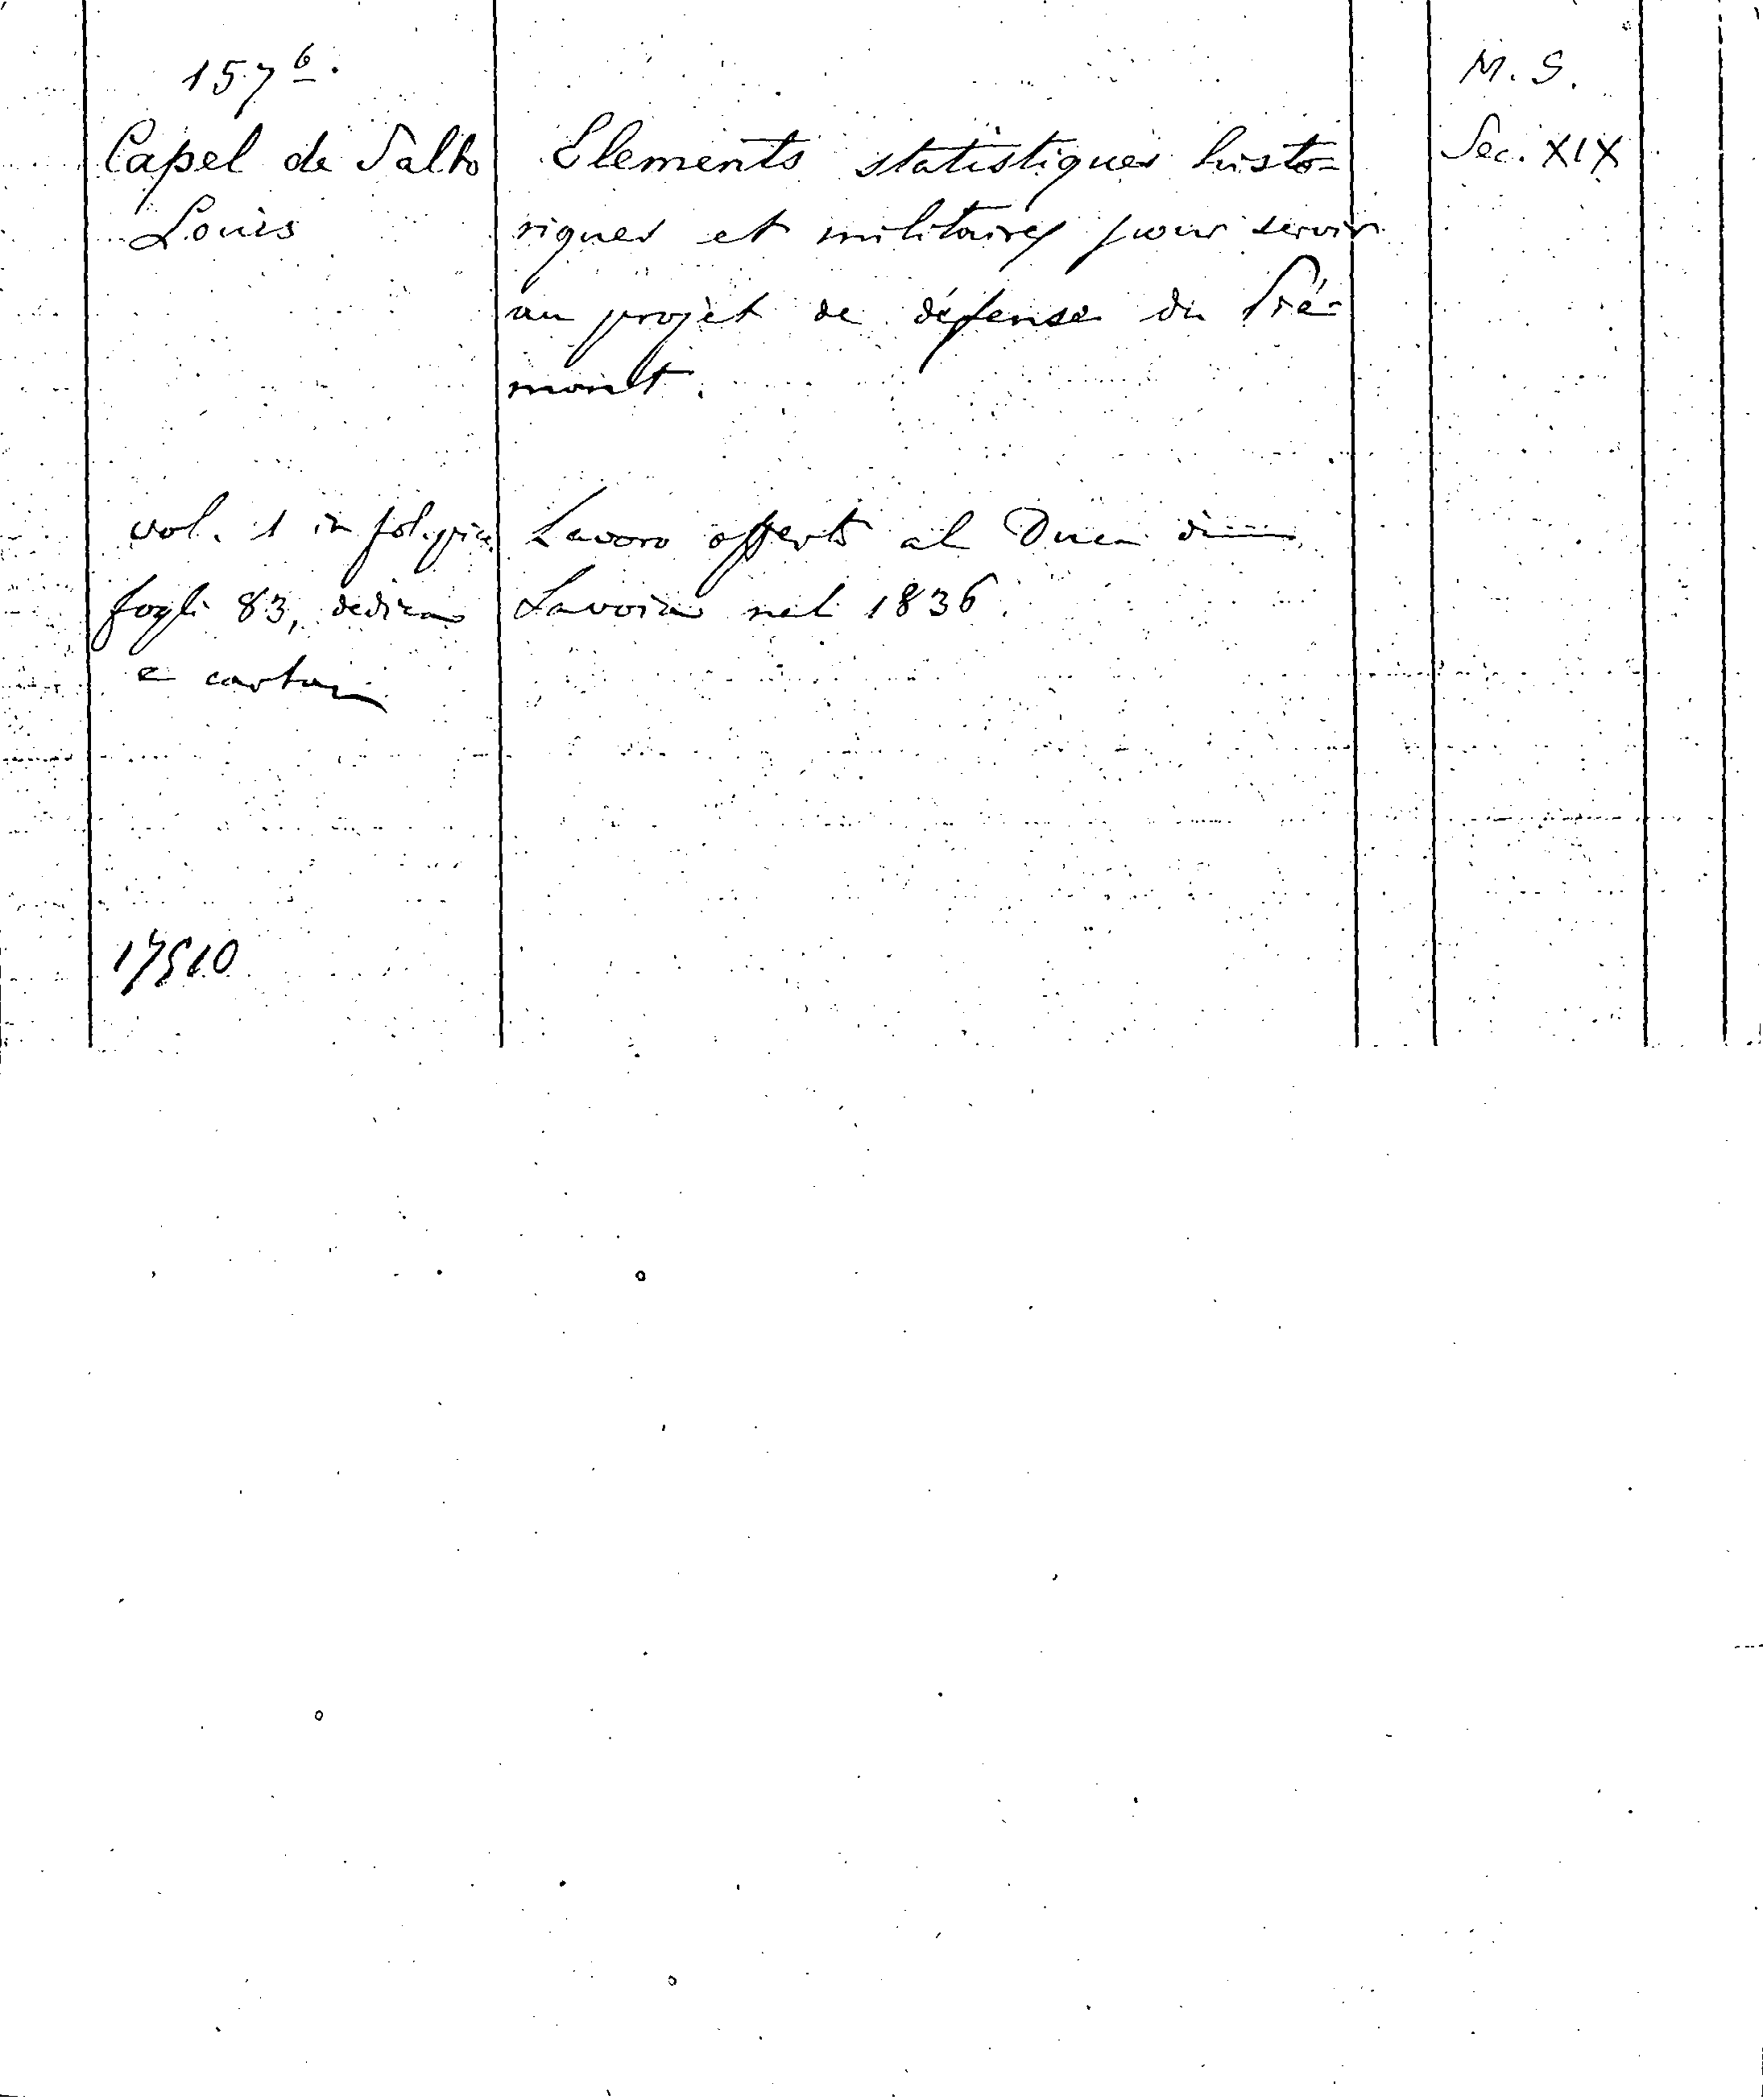 157 6.
M. S.
Capel de Salto
Louis
Elements statistiques histo=
riques et militaires pour servir
au projet de défense du Pié=
mont.
Sec. XIX
vol. 1 in fol.
fogli 83, dedica
e carta
Lavoro offerto al Duca di
Savoia nel 1836.
17510